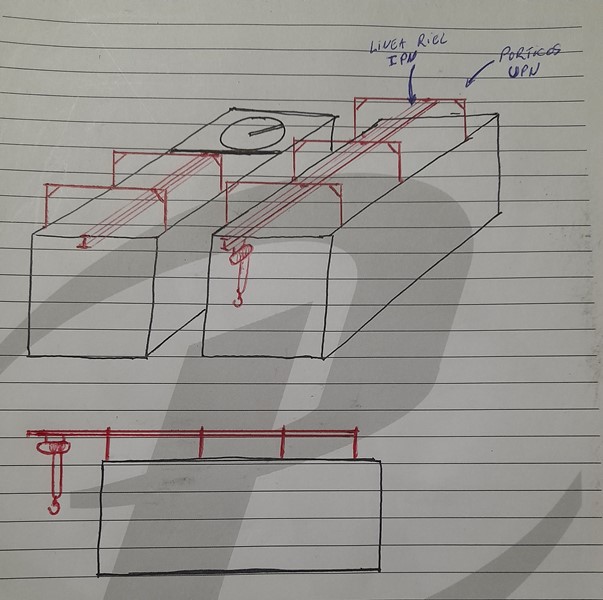 LINEA RIEL
IPN
PORTICOS
UPN